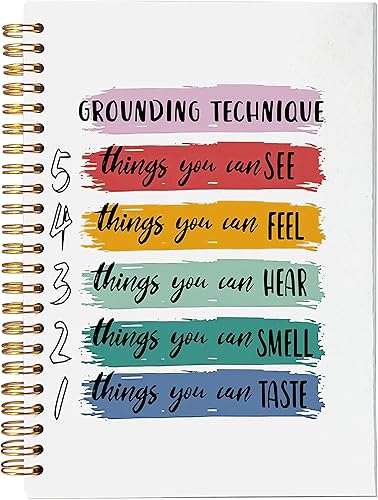 GROUNDING TECHNIQUE
5 things you can SEE
4 things you can FEEL
3 things you can HEAR
2 things you can SMELL
1 things you can TASTE